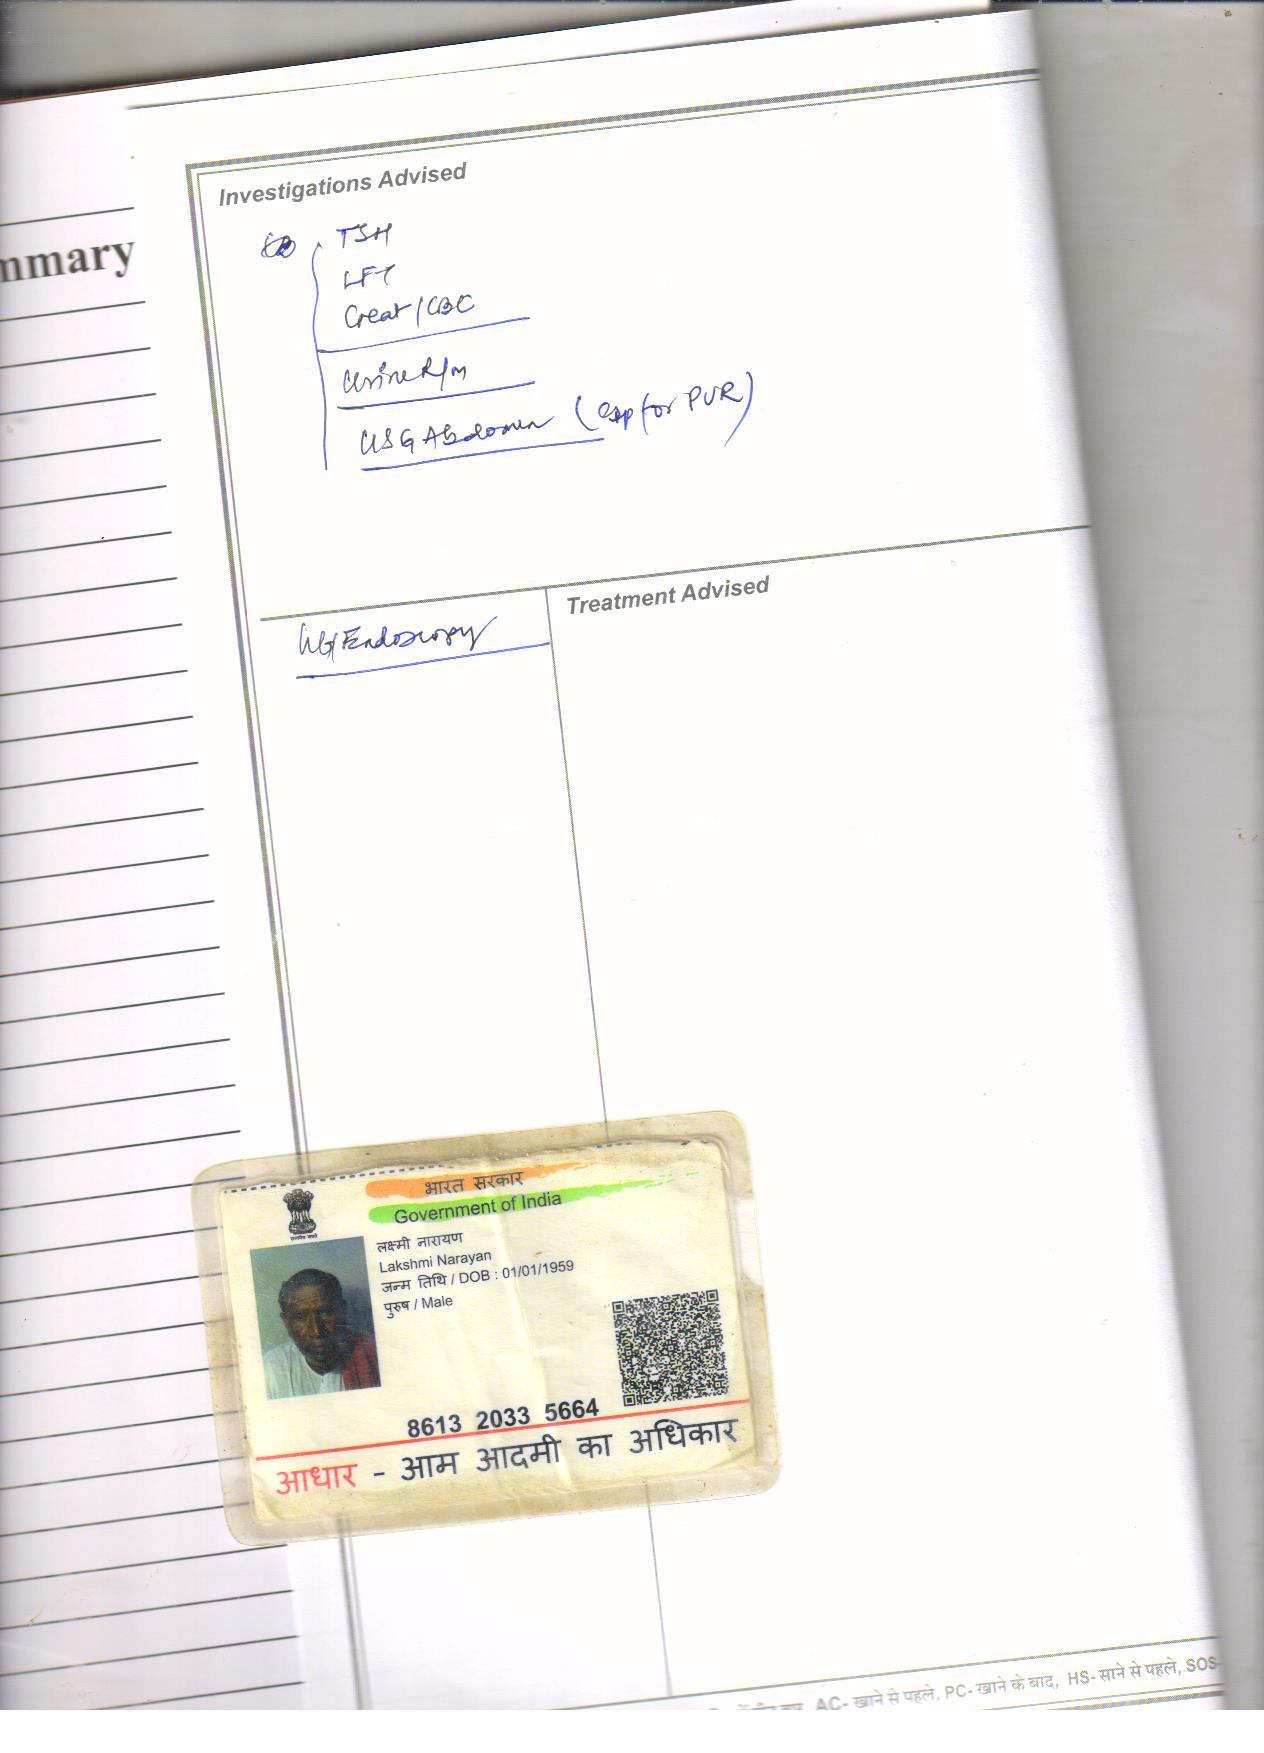 mmary
Investigations Advised
TSH
LFT
Creat/CBC
Urine R/m
USG Abdomen (esp for PVR)
Treatment Advised
UGI Endoscopy
भारत सरकार
Government of India
लक्ष्मी नारायण
Lakshmi Narayan
जन्म तिथि / DOB : 01/01/1959
पुरुष / Male
8613 2033 5664
आधार - आम आदमी का अधिकार
AC- खाने से पहले, PC- खाने के बाद, HS- साने से पहले, SOS-